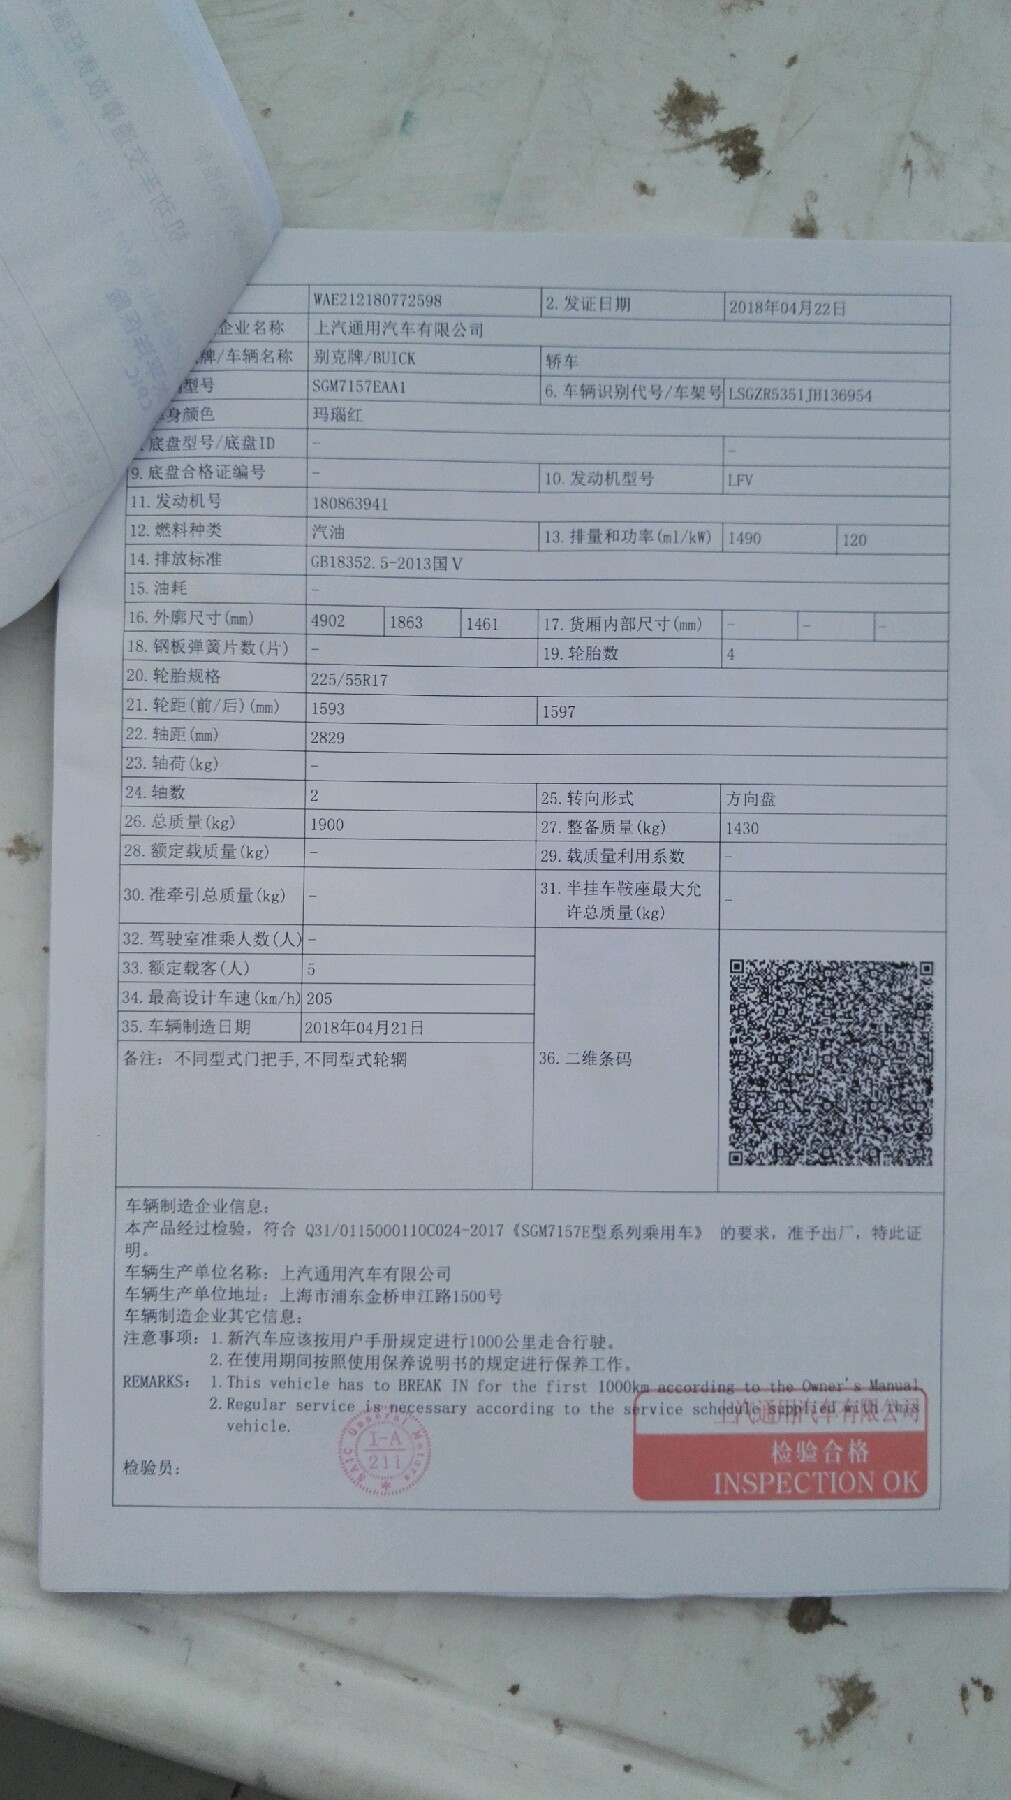 WAE212180772598 2.发证日期 2018年04月22日
企业名称 上汽通用汽车有限公司
牌/车辆名称 别克牌/BUICK 轿车
型号 SGM7157EAA1 6.车辆识别代号/车架号 LSGZR5351JH136954
身颜色 玛瑙红
底盘型号/底盘ID - -
9.底盘合格证编号 - 10.发动机型号 LFV
11.发动机号 180863941
12.燃料种类 汽油 13.排量和功率(ml/kW) 1490 120
14.排放标准 GB18352.5-2013国Ⅴ
15.油耗 -
16.外廓尺寸(mm) 4902 1863 1461 17.货厢内部尺寸(mm) - - -
18.钢板弹簧片数(片) - 19.轮胎数 4
20.轮胎规格 225/55R17
21.轮距(前/后)(mm) 1593 1597
22.轴距(mm) 2829
23.轴荷(kg) -
24.轴数 2 25.转向形式 方向盘
26.总质量(kg) 1900 27.整备质量(kg) 1430
28.额定载质量(kg) - 29.载质量利用系数 -
30.准牵引总质量(kg) - 31.半挂车鞍座最大允
许总质量(kg) -
32.驾驶室准乘人数(人) -
33.额定载客(人) 5
34.最高设计车速(km/h) 205
35.车辆制造日期 2018年04月21日
备注：不同型式门把手,不同型式轮辋 36.二维条码
车辆制造企业信息：
本产品经过检验，符合 Q31/0115000110C024-2017《SGM7157E型系列乘用车》 的要求，准予出厂，特此证
明。
车辆生产单位名称：上汽通用汽车有限公司
车辆生产单位地址：上海市浦东金桥申江路1500号
车辆制造企业其它信息：
注意事项：1.新汽车应该按用户手册规定进行1000公里走合行驶。
2.在使用期间按照使用保养说明书的规定进行保养工作。
REMARKS: 1.This vehicle has to BREAK IN for the first 1000km according to the Owner's Manual
2.Regular service is necessary according to the service schedule supplied with this
vehicle.
上汽通用汽车有限公司
检验合格
INSPECTION OK
SAIC General Motors
I-A
211
检验员：